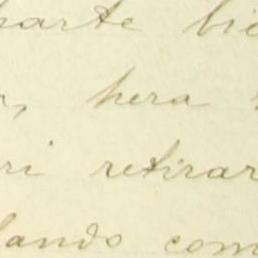 parte bie
, hera
ri retirar
lando com